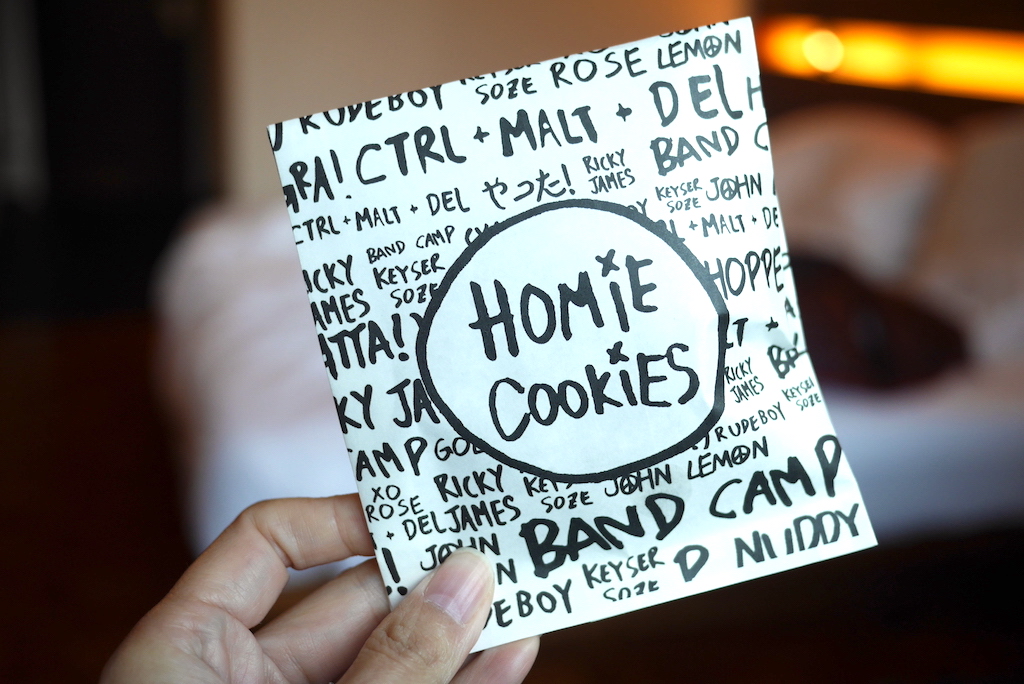 RUDEBOY KEYSER SOZE ROSE LEMON
CTRL + MALT + DEL
BAND
CTRL + MALT + DEL やった! RICKY JAMES KEYSER SOZE JOHN
BAND CAMP
+ MALT + DE
ICKY AMES KEYSER SOZE
HOPPE
ATTA!
HOMIE
COOKIES
RICKY JAMES
KEYSER SOZE
KY JA
RUDEBOY
AMP
XO ROSE RICKY JAMES SOZE JOHN LEMON
+ DEL
BAND CAMP
JOHN
DEBOY KEYSER SOZE D NUDDY